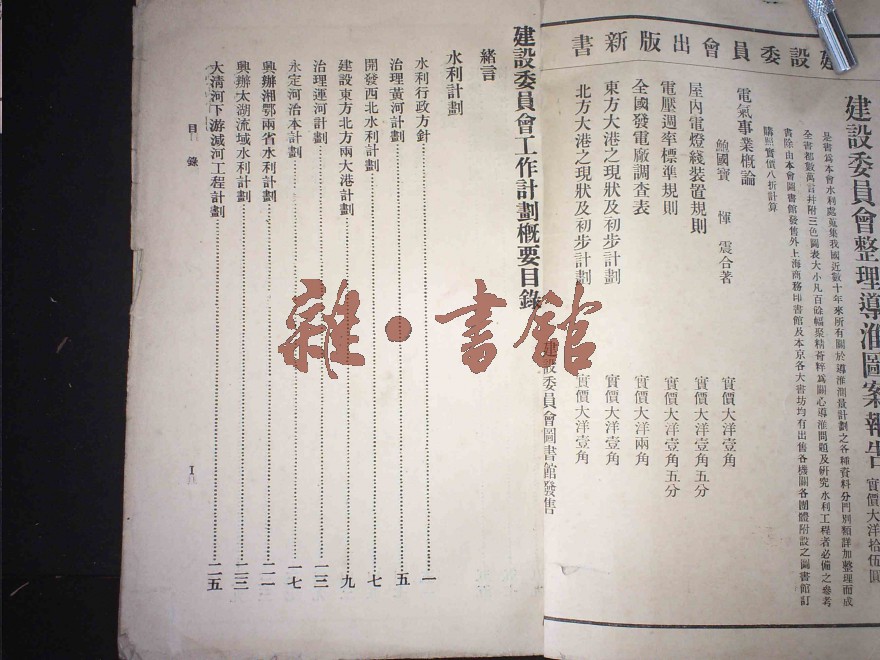 建設委員會出版新書
建設委員會整理導淮圖案報告 實價大洋拾伍圓
是書爲本會水利處蒐集我國近數十年來所有關於導淮測量計劃之各種資料分門別類詳加整理而成
全書都數萬言幷附三色圖表大小凡百餘幅聚精薈粹爲關心導淮問題及硏究水利工程者必備之參考
書除由本會圖書館發售外上海商務印書館及本京各大書坊均有出售各機關各團體附設之圖書館訂
購照實價八折計算
電氣事業概論
鮑國寶 惲震合著 實價大洋壹角
屋內電燈綫裝置規則 實價大洋壹角五分
電壓週率標準規則 實價大洋壹角五分
全國發電廠調查表 實價大洋兩角
東方大港之現狀及初步計劃 實價大洋壹角
北方大港之現狀及初步計劃 實價大洋壹角
建設委員會圖書館發售
建設委員會工作計劃概要目錄
緒言
水利計劃
水利行政方針 一
治理黃河計劃 五
開發西北水利計劃 七
建設東方北方兩大港計劃 九
治理運河計劃 一三
永定河治本計劃 一七
興辦湘鄂兩省水利計劃 二一
興辦太湖流域水利計劃 二三
大清河下游減河工程計劃 二五
目錄
雜·書館